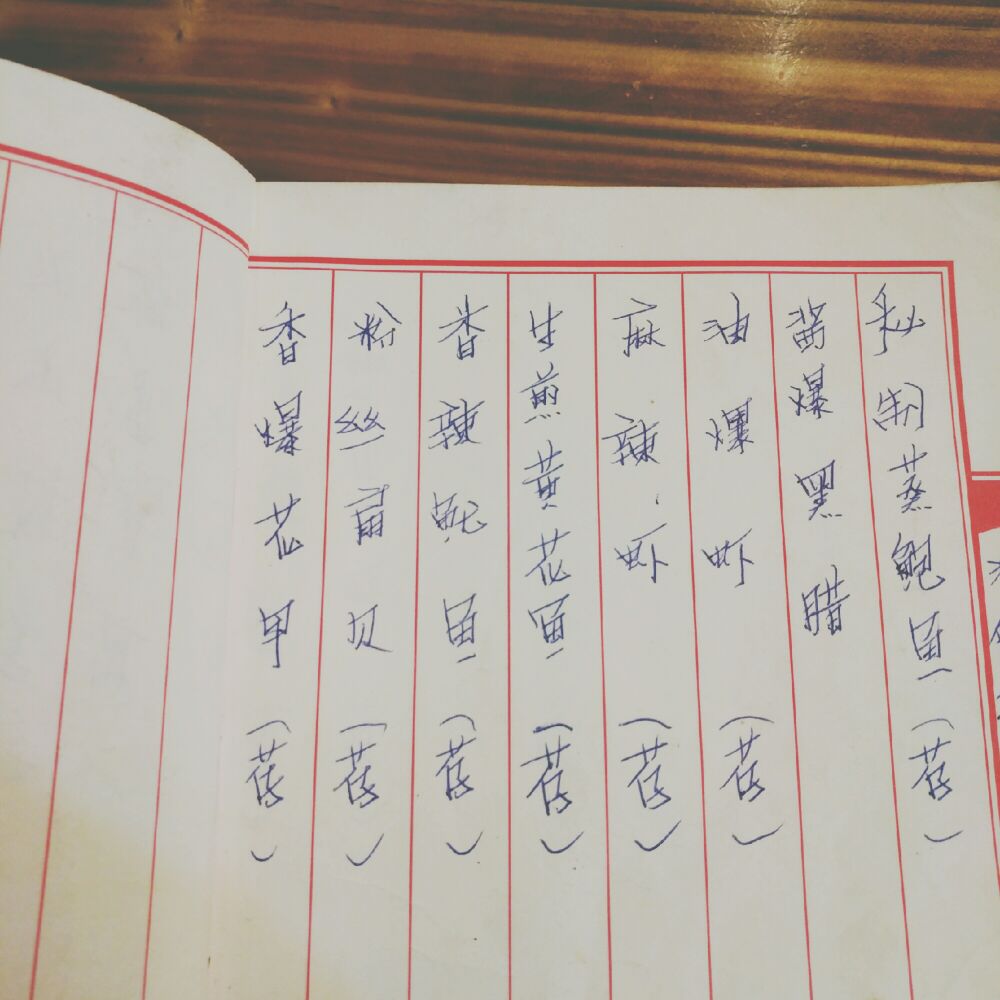 秘制蒸鲍鱼（荐）
酱爆黑腊
油爆虾（荐）
麻辣虾（荐）
生煎黄花鱼（荐）
香辣鱿鱼（荐）
粉丝扇贝（荐）
香爆花甲（荐）